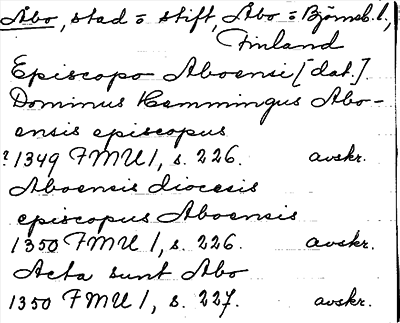 Åbo, stad o stift, Åbo o Björneb. l.,
Finland
Episcopo Aboensi [dat.]
Dominus Hemmingus Abo-
ensis episcopus
? 1349 FMU 1, s. 226. avskr.
Aboensis diocesis
episcopus Aboensis
1350 FMU 1, s. 226. avskr.
Acta sunt Abo
1350 FMU 1, s. 227. avskr.